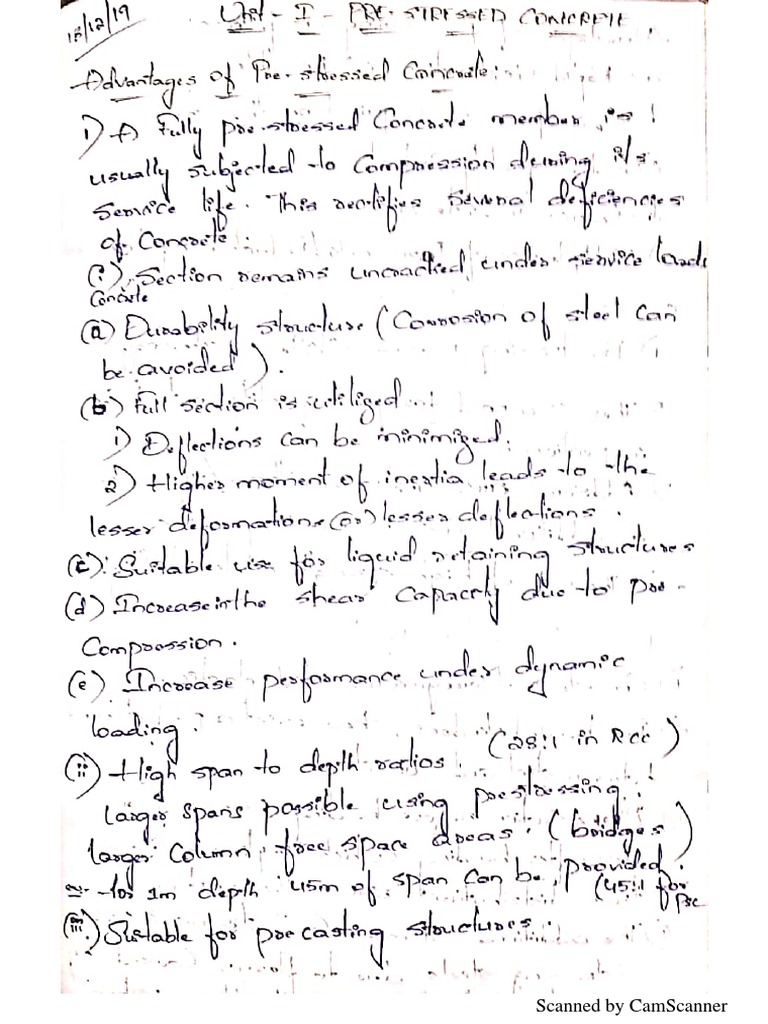 18/12/19
Unit - I - PRE-STRESSED CONCRETE
Advantages of Pre-stressed Concrete:
1) A Fully pre-stressed Concrete member is
usually subjected to Compression during its
service life. This rectifies several deficiencies
of Concrete:
(i) Section remains uncracked under service loads
Concrete
(a) Durability structure (Corrosion of steel can
be avoided).
(b) Full section is utilized.
1) Deflections can be minimized.
2) Higher moment of inertia leads to the
lesser deformations (or) lesser deflections.
(c) Suitable use for liquid retaining structures
(d) Increase in the shear Capacity due to pre-
Compression.
(e) Increase performance under dynamic
loading.
(28:1 in RCC)
(ii) High span to depth ratios.
larger spans possible using prestressing.
larger Column free space areas. (bridges)
for 1m depth 45m of span can be provided.
(45:1 for
PSC
(iii) Suitable for precasting structures.
Scanned by CamScanner